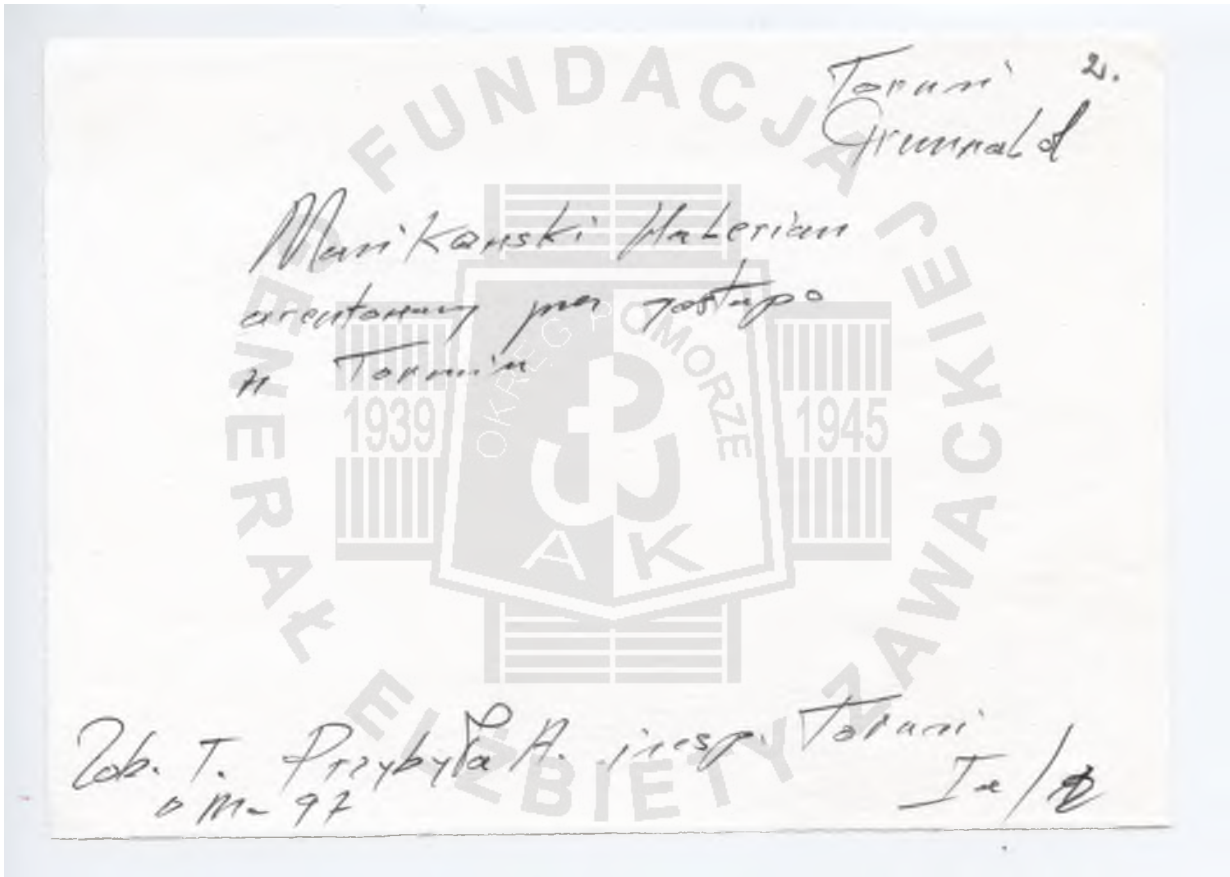 2.
Toruń
Grunwald
Mańkowski Walerian
aresztowany przez gestapo
w Toruniu
Zob. T. Przybyła A. insp. Toruń
97
FUNDACJA
GENERAŁ ELŻBIETY ZAWACKIEJ
OKRĘG POMORZE
1939
1945
AK